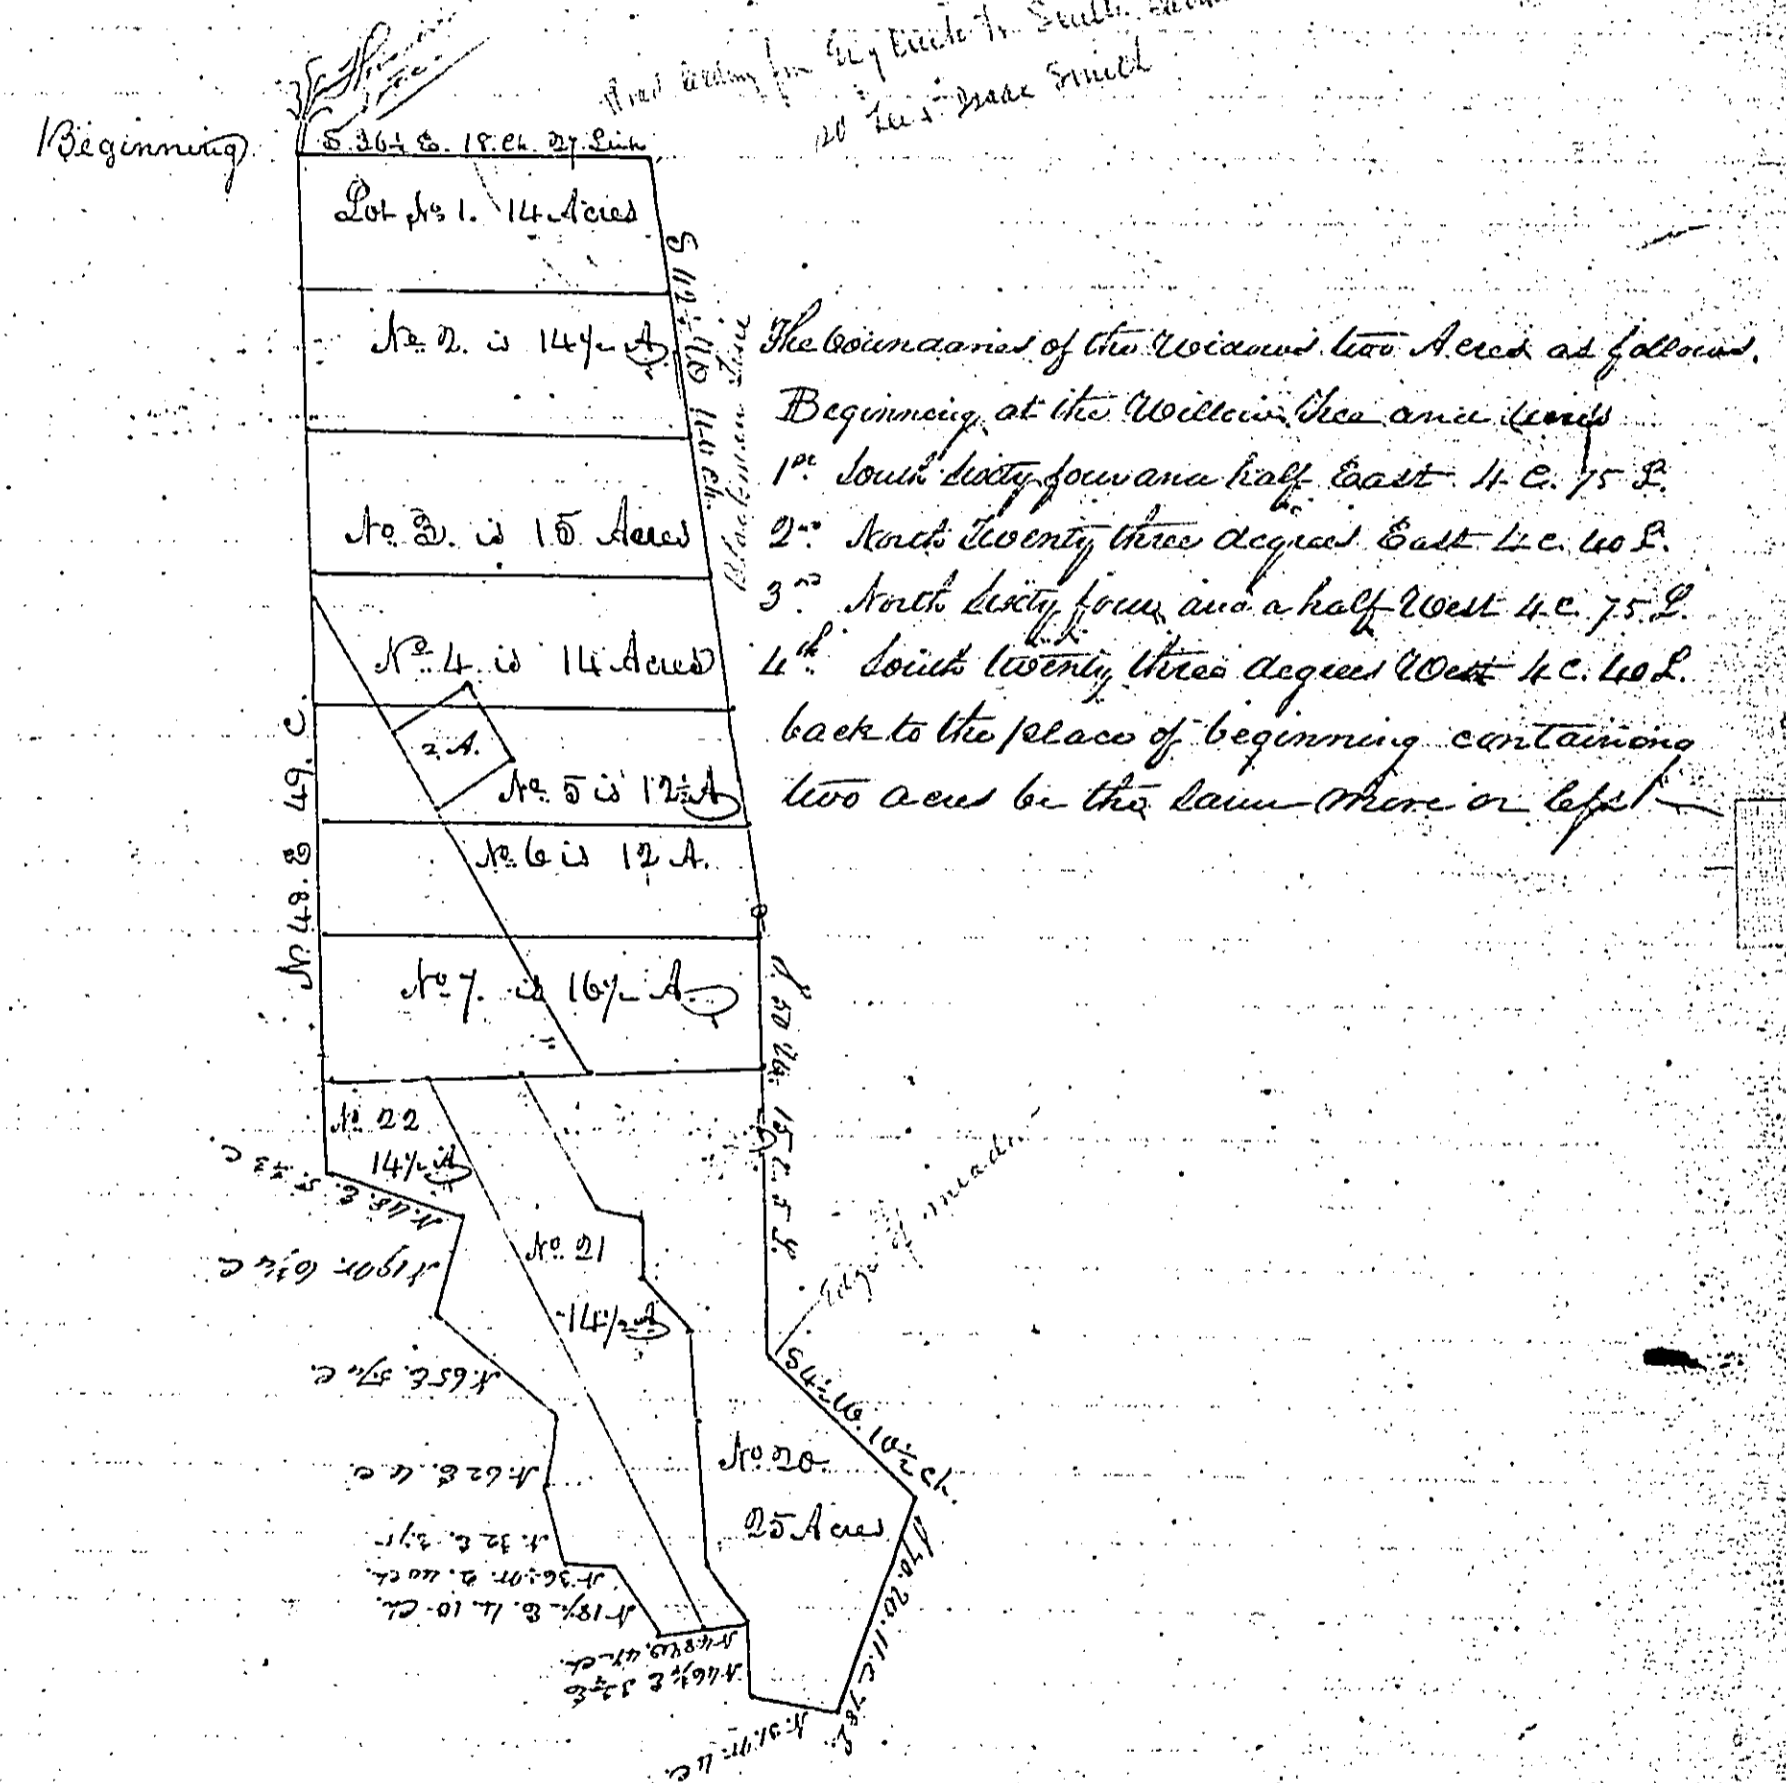 Road leading from to South
20 Isaac Smith
Beginning
S. 36½ E. 18. Ch. 27. Link
Lot No 1. 14 Acres
No 2. is 14½ A
No 3. is 15 Acres
No 4 is 14 Acres
2. A.
No 5 is 12½ A
No 6 is 12 A.
No 7. is 16½ A
No 22
14½ A
No 21
14½ A
No 20
25 Acres
S 42½ W 40 Ch.
Line
S 50 W. 15 C. 5 L.
Edge of meadow
S 4½ W. 10½ Ch.
S 70. 20. 11. C 78 L
N. 31. W. 4 C.
N 46½ E
N 48 W. 4½ Ch.
N 18½ E. 4. 10 Ch.
N 36½ W. 2. 40 Ch.
N. 32 E.
N. 62 E. 4 C.
N. 65 E.
N 19 W. 6¾ C
N. 48. E.
N. 48. E 49. C.
The boundaries of the Widows two Acres as follows.
Beginning at the Willow Tree and runs
1st South Sixty four and half East 4. C. 75 L.
2nd North Twenty three degrees East 4 C. 40 L.
3rd North Sixty four and a half West 4 C. 75 L.
4th South twenty three degrees West 4 C. 40 L.
back to the place of beginning containing
two acres be the same more or less